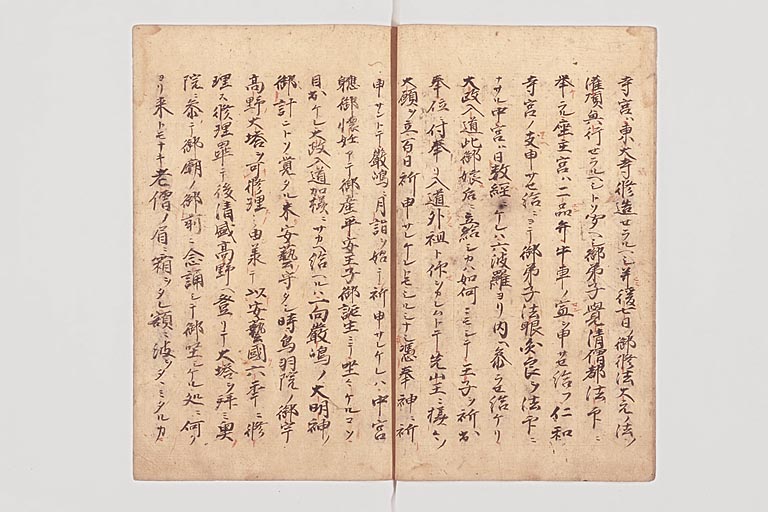 寺宮ハ東大寺修造セラルヘシ并後七日ノ御修法大元ノ法
灌頂興行セラルヘシトソ宣ヘ御弟子覺清僧都法印ニ
挙ス座主宮ハ二品并牛車ノ宣ヲ申サセ給フ仁和
寺宮ノ支申サセ給ニヨテ御弟子法眼良ヲ法印ニ
ナサル中宮ハ日数経ニケレハ六波羅ヨリ内ヘ参ラセ給ケリ
大政入道此御娘后ニ立給シカハ如何ニモシテ王子ヲ祈
奉位ニ付奉リ入道外祖ト仰カレハヤトテ先山王ニ
大願ヲ立百日祈申サレケレトモシルシナシ憑奉神ニ祈
申サントテ厳嶋ニ月詣ヲ始テ祈申サレケレハ中宮
聽御懐妊アテ御産平安王子御誕生ニテ坐ケルコソ
目出ケレ大政入道加様ニサカヘ給ヘルハ一向厳嶋ノ大明神ノ
御計ニトソ覚タル未安藝守タシ時鳥羽院ノ御宇
高野大塔ヲ可修理之由蒙テ以安藝國六年ニ修
理ス修理畢テ後清盛高野ヘ登リテ大塔ヲ拝ミ奥
院ニ参テ御廟ノ御前ニ念誦シテ御坐シケル処ニ何ク
ヨリ来トモナキ老僧ノ眉ニ霜ヲタレ額ニ波ヲタヽミタルカ